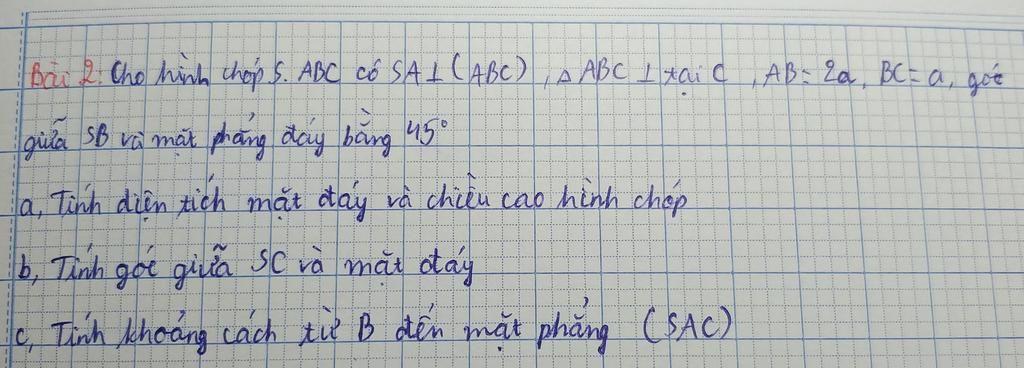 Bài 2: Cho hình chóp S. ABC có SA ⊥ (ABC), △ ABC ⊥ tại C, AB = 2a, BC = a, góc
giữa SB và mặt phẳng đáy bằng 45°
a, Tính diện tích mặt đáy và chiều cao hình chóp
b, Tính góc giữa SC và mặt đáy
c, Tính khoảng cách từ B đến mặt phẳng (SAC)